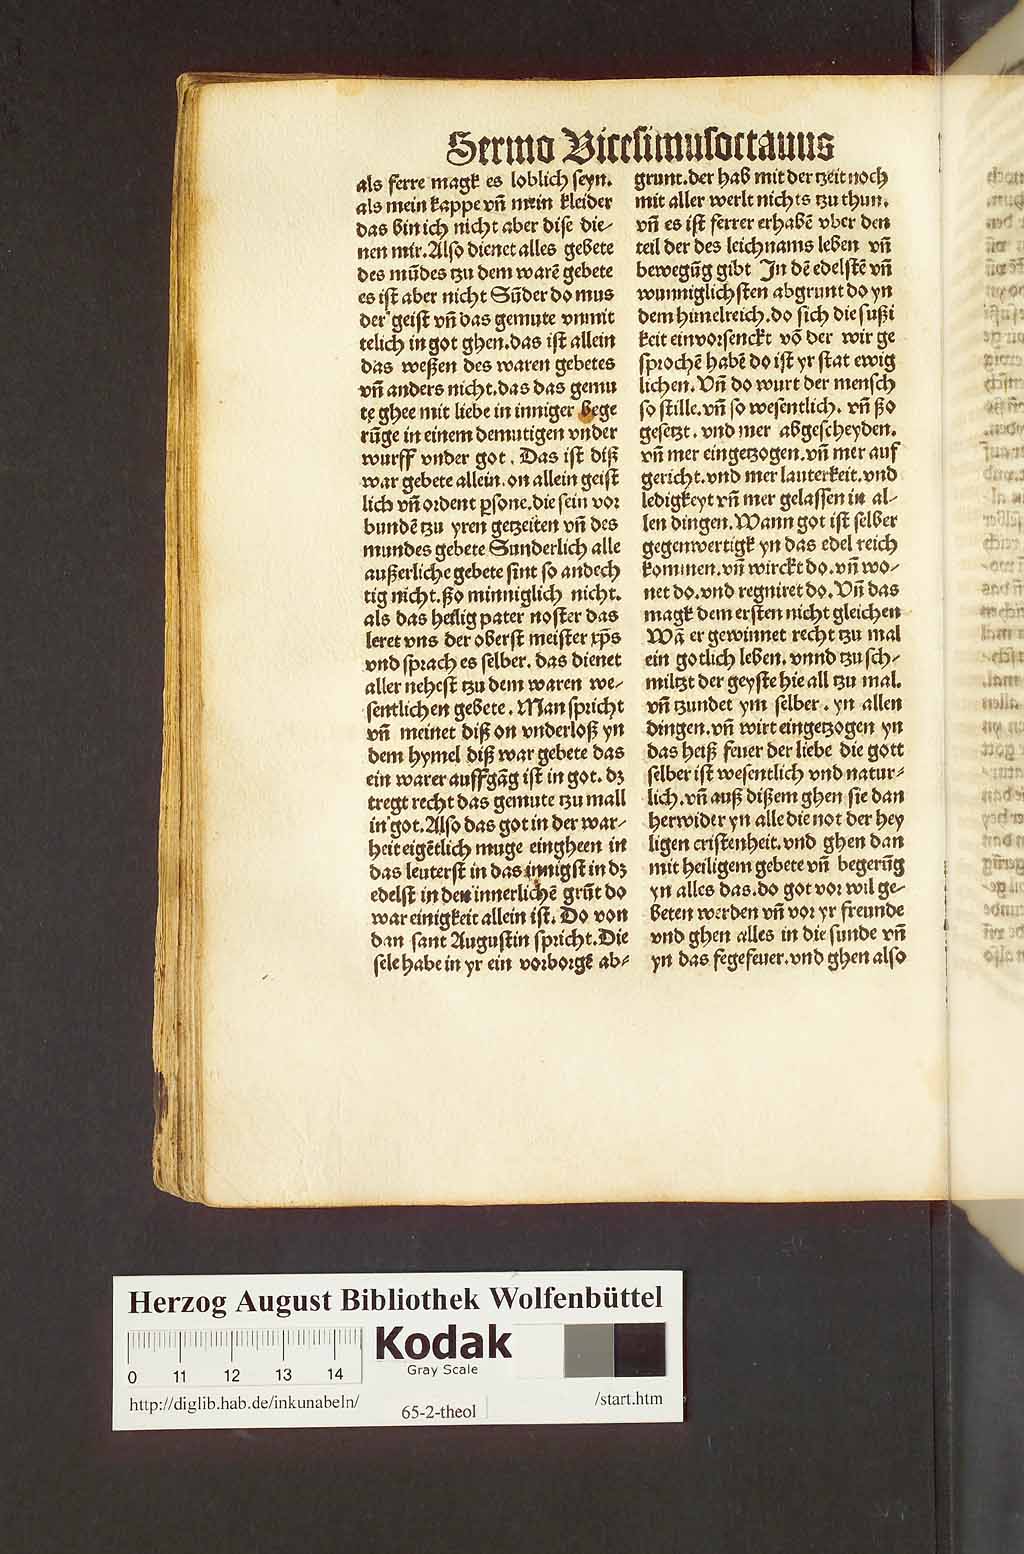 Sermo Vicesimusoctauus
als ferre magk es loblich seyn.
als mein kappe vñ mein kleider
das bin ich nicht aber dise die-
nen mir. Also dienet alles gebete
des mūdes tzu dem warē gebete
es ist aber nicht Sūder do mus
der geist vñ das gemute vnmit
telich in got ghen. das ist allein
das weßen des waren gebetes
vñ anders nicht. das das gemu
te ghee mit liebe in inniger bege
rūge in einem demutigen vnder
wurff vnder got. Das ist diß
war gebete allein. on allein geist
lich vñ ordent ꝑsone. die sein vor
bundē tzu yren getzeiten vñ des
mundes gebete Sunderlich alle
außerliche gebete sint so andech
tig nicht. ßo minniglich nicht.
als das heilig pater noster das
leret vns der oberst meister xp̄s
vnd sprach es selber. das dienet
aller nehest tzu dem waren we-
sentlichen gebete. Man spricht
vñ meinet diß on vnderloß yn
dem hymel diß war gebete das
ein warer auffgāg ist in got. dz
tregt recht das gemute tzu mall
in got. Also das got in der war-
heit eigētlich muge eingheen in
das leuterst in das innigst in dz
edelst in den innerlichē grūt do
war einigkeit allein ist. Do von
dan sant Augustin spricht. Die
sele habe in yr ein vorborgē ab-
grunt. der hab mit der tzeit noch
mit aller werlt nichts tzu thun.
vñ es ist ferrer erhabē vber den
teil der des leichnams leben vñ
bewegūg gibt In dē edelstē vñ
wunniglichsten abgrunt do yn
dem himelreich. do sich die sußi
keit einvorsenckt vō der wir ge
sprochē habē do ist yr stat ewig
lichen. Vñ do wurt der mensch
so stille. vñ so wesentlich. vñ ßo
gesetzt. vnd mer abgescheyden.
vñ mer eingetzogen. vñ mer auf
gericht. vnd mer lauterkeit. vnd
ledigkeyt vñ mer gelassen in al-
len dingen. Wann got ist selber
gegenwertigk yn das edel reich
kommen. vñ wirckt do. vñ wo-
net do. vnd regniret do. Vñ das
magk dem ersten nicht gleichen
Wā er gewinnet recht tzu mal
ein gotlich leben. vnnd tzu sch-
miltzt der geyste hie all tzu mal.
vñ tzundet ym selber. yn allen
dingen. vñ wirt eingetzogen yn
das heiß feuer der liebe die gott
selber ist wesentlich vnd natur-
lich. vñ auß dißem ghen sie dan
herwider yn alle die not der hey
ligen cristenheit. vnd ghen dan
mit heiligem gebete vñ begerūg
yn alles das. do got vor wil ge-
beten werden vñ vor yr freunde
vnd ghen alles in die sunde vñ
yn das fegefeuer. vnd ghen also
Herzog August Bibliothek Wolfenbüttel
0 11 12 13 14
Kodak
Gray Scale
http://diglib.hab.de/inkunabeln/
65-2-theol
/start.htm